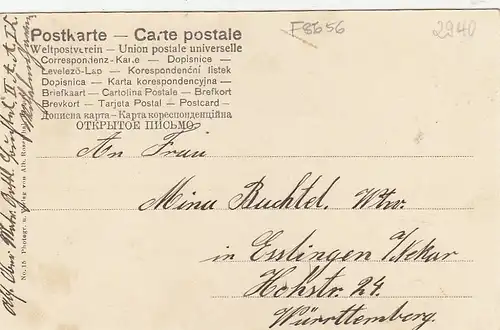 F8656
2940
Postkarte — Carte postale
Weltpostverein — Union postale universelle
Correspondenz-Karte — Dopisnice —
Levelező-Lap — Korespondenční listek
Dopisnica — Karta korespondencyjna —
Briefkaart — Cartolina Postale — Brefkort
Brevkort — Tarjeta Postal — Postcard —
Дописна карта — Карта кореспонденційна
ОТКРЫТОЕ ПИСЬМО
An Frau
Minu Buchtel. Wtw.
in Esslingen a/Nekar
Hohstr. 24.
Württemberg.
No. 15 Photogr. u. Verlag von Alb.